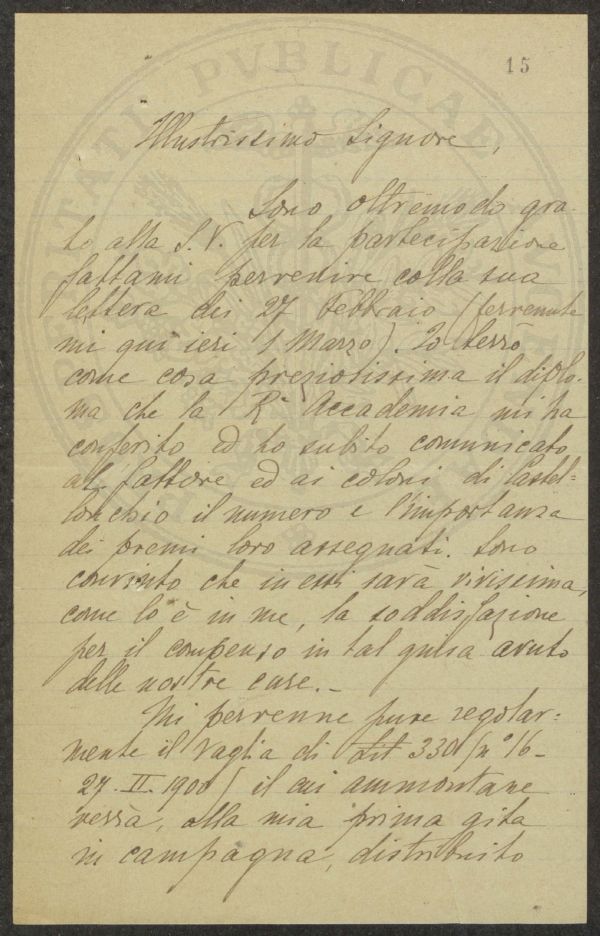 15
Illustrissimo Signore,
Sono oltremodo gra-
to alla S. V. per la partecipazione
fattami pervenire colla sua
lettera dei 27 Febbraio (pervenuta
mi qui ieri 1 Marzo). Io terrò
come cosa preziosissima il diplo-
ma che la Rª Accademia mi ha
conferito ed ho subito comunicato
al fattore ed ai coloni di Castel=
lonchio il numero e l'importanza
dei premi loro assegnati. Sono
convinto che in essi sarà vivissima,
come lo è in me, la soddisfazione
per il compenso in tal guisa avuto
delle nostre cure.-
Mi pervenne pure regolar=
mente il vaglia di Lit 330 (nº 16-
27. II. 1900) il cui ammontare
verrà, alla mia prima gita
in campagna, distribuito
PROSPERITATI PVBLICAE